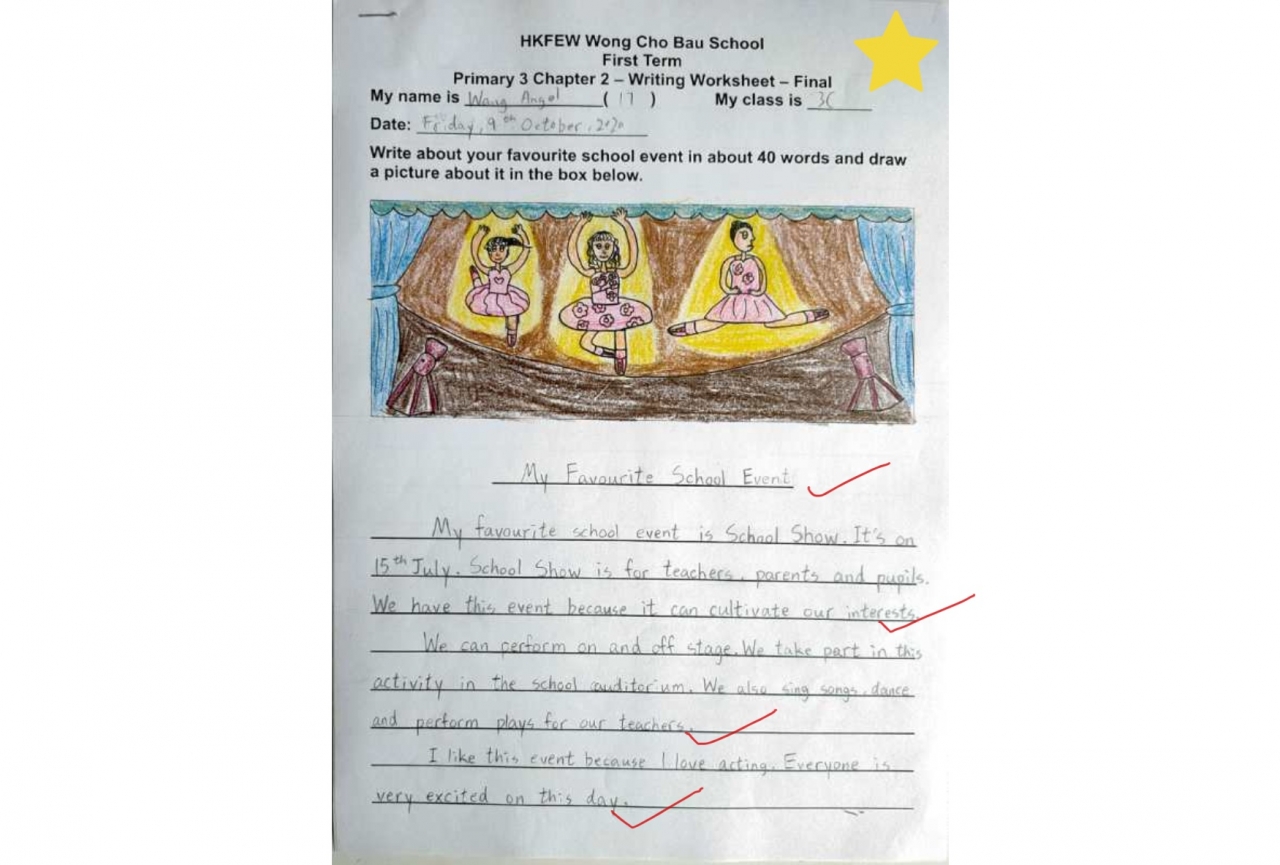 HKFEW Wong Cho Bau School
First Term
Primary 3 Chapter 2 – Writing Worksheet – Final
My name is Wang Angel ( 17 ) My class is 3C
Date: Friday, 9th October, 2020
Write about your favourite school event in about 40 words and draw
a picture about it in the box below.
My Favourite School Event
My favourite school event is School Show. It's on
15th July. School Show is for teachers, parents and pupils.
We have this event because it can cultivate our interests.
We can perform on and off stage. We take part in this
activity in the school auditorium. We also sing songs, dance
and perform plays for our teachers.
I like this event because I love acting. Everyone is
very excited on this day.